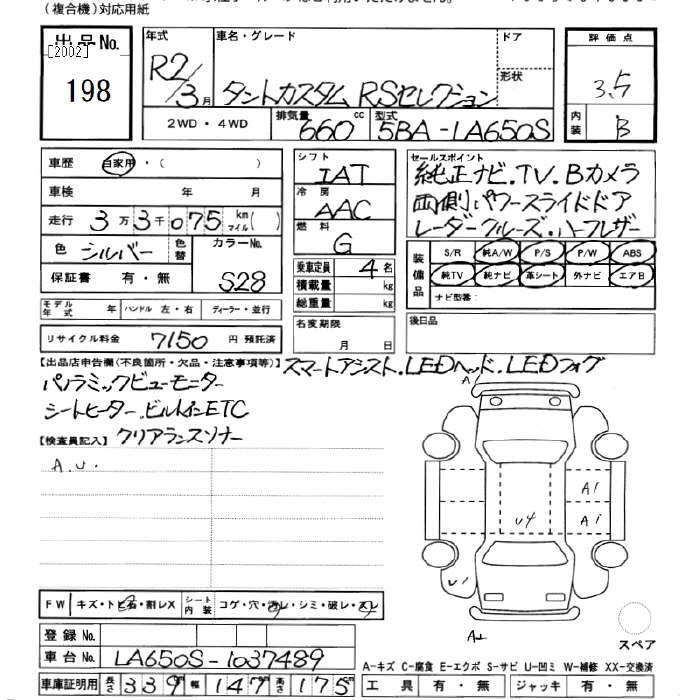 (複合機)対応用紙
出品No. 年式 車名・グレード ドア 評価点
[2002]
198 R2/3月 タントカスタム RSセレクション 形状 3.5
2WD・4WD 排気量 660 cc 型式 5BA-LA650S 内装 B
車歴 自家用・( )
車検 年 月
走行 3万3千075 km マイル( )
色 シルバー 色替 カラーNo. S28
保証書 有・無
モデル年式 年 ハンドル 左・右 ディーラー・並行
リサイクル料金 7150 円 預託済
シフト IAT
冷房 AAC
燃料 G
乗車定員 4名
積載量 kg
総重量 kg
名変期限 月 日
セールスポイント
純正ナビ.TV.Bカメラ
両側パワースライドドア
レーダークルーズ.ハーフレザー
装備品 S/R 純A/W P/S P/W ABS
純TV 純ナビ 革シート 外ナビ エアB
ナビ型番:
後日品
【出品店申告欄(不良箇所・欠品・注意事項等)】スマートアシスト.LEDヘッド.LEDフォグ
パノラミックビューモニター
シートヒーター.ビルトインETC
【検査員記入】クリアランスソナー
A.U.
A1
A1
U4 A1
U1
AU
スペア
FW キズ・トビ石・割レX シート内装 コゲ・穴・汚レ・シミ・破レ・スレ
登録No.
車台No. LA650S-1037489
車庫証明用 長さ 339 幅 147 高さ 175
A-キズ C-腐食 E-エクボ S-サビ U-凹ミ W-補修 XX-交換済
工具 有・無 ジャッキ 有・無